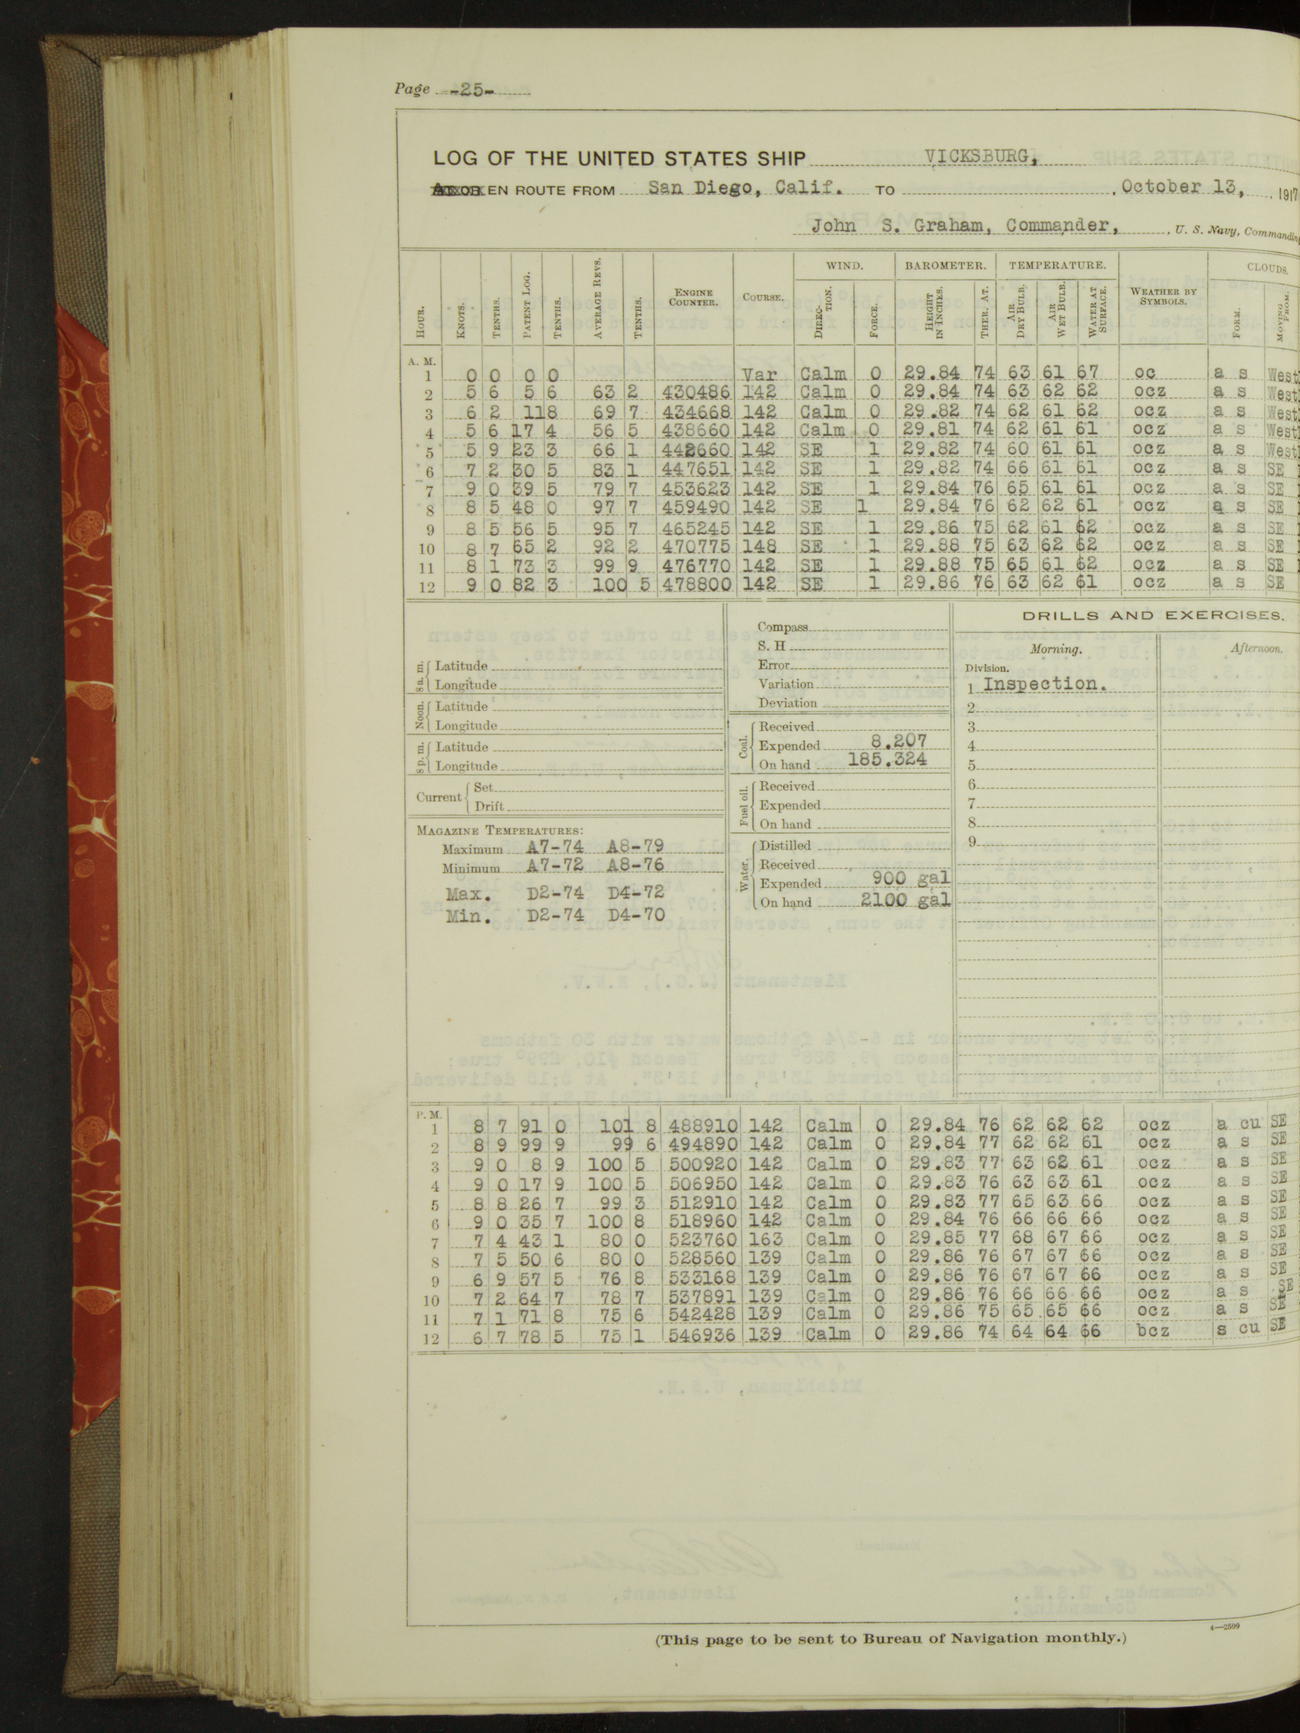 Page -25-
LOG OF THE UNITED STATES SHIP VICKSBURG,
EN ROUTE FROM San Diego, Calif. TO , October 13, , 1917
John S. Graham, Commander, , U. S. Navy, Commanding
HOUR. KNOTS. TENTHS. PATENT LOG. TENTHS. AVERAGE REVS. TENTHS. ENGINE COUNTER. COURSE. WIND. DIRECTION. FORCE. BAROMETER. HEIGHT IN INCHES. THER. AT. TEMPERATURE. AIR DRY BULB. AIR WET BULB. WATER AT SURFACE. WEATHER BY SYMBOLS. CLOUDS. FORM. MOVING FROM.
A. M.
1 0 0 0 0 Var Calm 0 29.84 74 63 61 67 oc a s West
2 5 6 5 6 63 2 430486 142 Calm 0 29.84 74 63 62 62 ocz a s West
3 6 2 11 8 69 7 434668 142 Calm 0 29.82 74 62 61 62 ocz a s West
4 5 6 17 4 56 5 438660 142 Calm 0 29.81 74 62 61 61 ocz a s West
5 5 9 23 3 66 1 442660 142 SE 1 29.82 74 60 61 61 ocz a s West
6 7 2 30 5 83 1 447651 142 SE 1 29.82 74 66 61 61 ocz a s SE
7 9 0 39 5 79 7 453623 142 SE 1 29.84 76 65 61 61 ocz a s SE
8 8 5 48 0 97 7 459490 142 SE 1 29.84 76 62 62 61 ocz a s SE
9 8 5 56 5 95 7 465245 142 SE 1 29.86 75 62 61 62 ocz a s SE
10 8 7 65 2 92 2 470775 148 SE 1 29.88 75 63 62 62 ocz a s SE
11 8 1 73 3 99 9 476770 142 SE 1 29.88 75 65 61 62 ocz a s SE
12 9 0 82 3 100 5 478800 142 SE 1 29.86 76 63 62 61 ocz a s SE
8 a. m. Latitude
Longitude
Noon. Latitude
Longitude
8 p. m. Latitude
Longitude
Current Set
Drift
MAGAZINE TEMPERATURES:
Maximum A7-74 A8-79
Minimum A7-72 A8-76
Max. D2-74 D4-72
Min. D2-74 D4-70
Compass
S. H
Error
Variation
Deviation
Coal. Received
Expended 8.207
On hand 185.324
Fuel oil. Received
Expended
On hand
Water. Distilled
Received
Expended 900 gal
On hand 2100 gal
DRILLS AND EXERCISES.
Morning. Afternoon.
Division.
1 Inspection.
2
3
4
5
6
7
8
9
P. M.
1 8 7 91 0 101 8 488910 142 Calm 0 29.84 76 62 62 62 ocz a cu SE
2 8 9 99 9 99 6 494890 142 Calm 0 29.84 77 62 62 61 ocz a s SE
3 9 0 8 9 100 5 500920 142 Calm 0 29.83 77 63 62 61 ocz a s SE
4 9 0 17 9 100 5 506950 142 Calm 0 29.83 76 63 63 61 ocz a s SE
5 8 8 26 7 99 3 512910 142 Calm 0 29.83 77 65 63 66 ocz a s SE
6 9 0 35 7 100 8 518960 142 Calm 0 29.84 76 66 66 66 ocz a s SE
7 7 4 43 1 80 0 523760 163 Calm 0 29.85 77 68 67 66 ocz a s SE
8 7 5 50 6 80 0 528560 139 Calm 0 29.86 76 67 67 66 ocz a s SE
9 6 9 57 5 76 8 533168 139 Calm 0 29.86 76 67 67 66 ocz a s SE
10 7 2 64 7 78 7 537891 139 Calm 0 29.86 76 66 66 66 ocz a s SE
11 7 1 71 8 75 6 542428 139 Calm 0 29.86 75 65 65 66 ocz a s SE
12 6 7 78 5 75 1 546936 139 Calm 0 29.86 74 64 64 66 bcz s cu SE
(This page to be sent to Bureau of Navigation monthly.)
4—2599